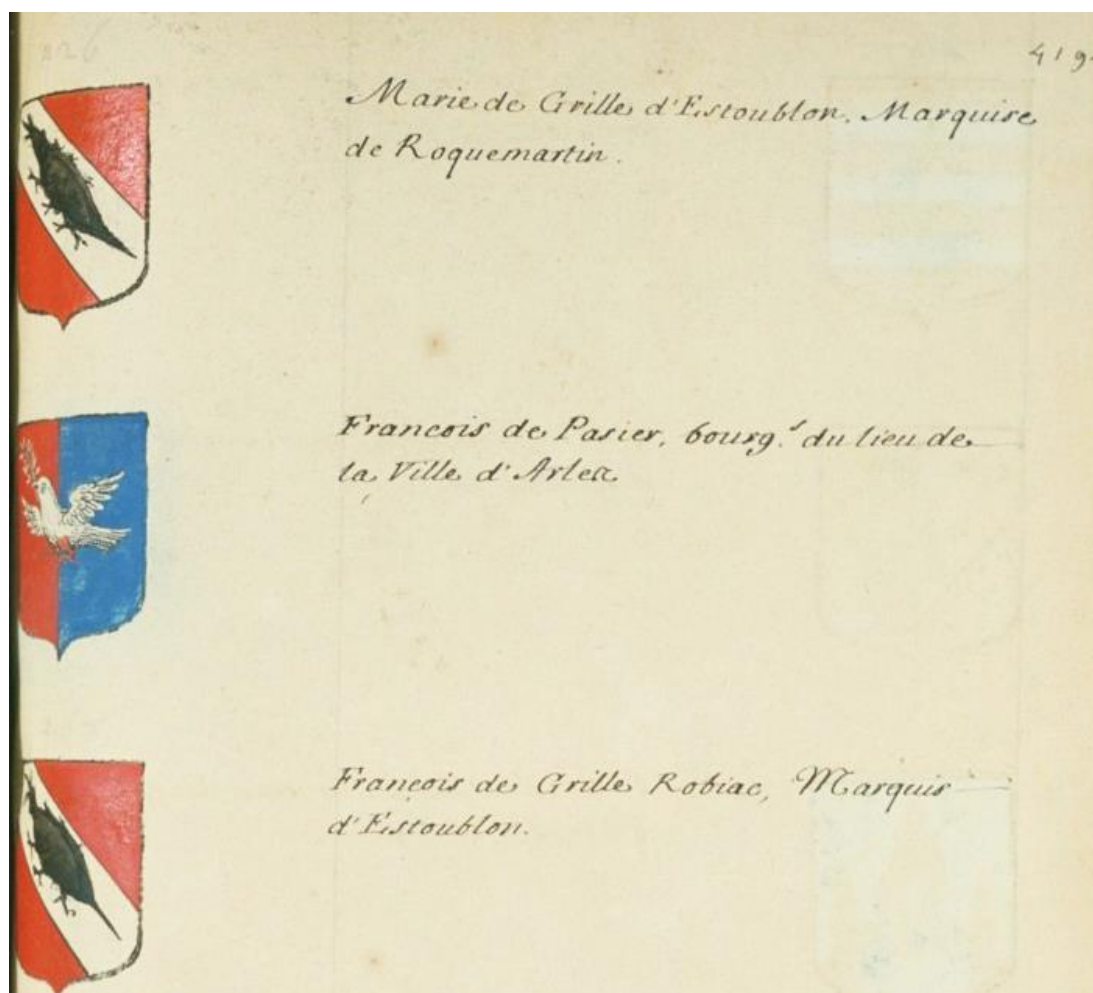 419.
Marie de Grille d'Estoublon, Marquise
de Roquemartin.
Francois de Pasier, bourg.s du lieu de
la Ville d'Arles
Francois de Grille Robiac, Marquis
d'Estoublon.